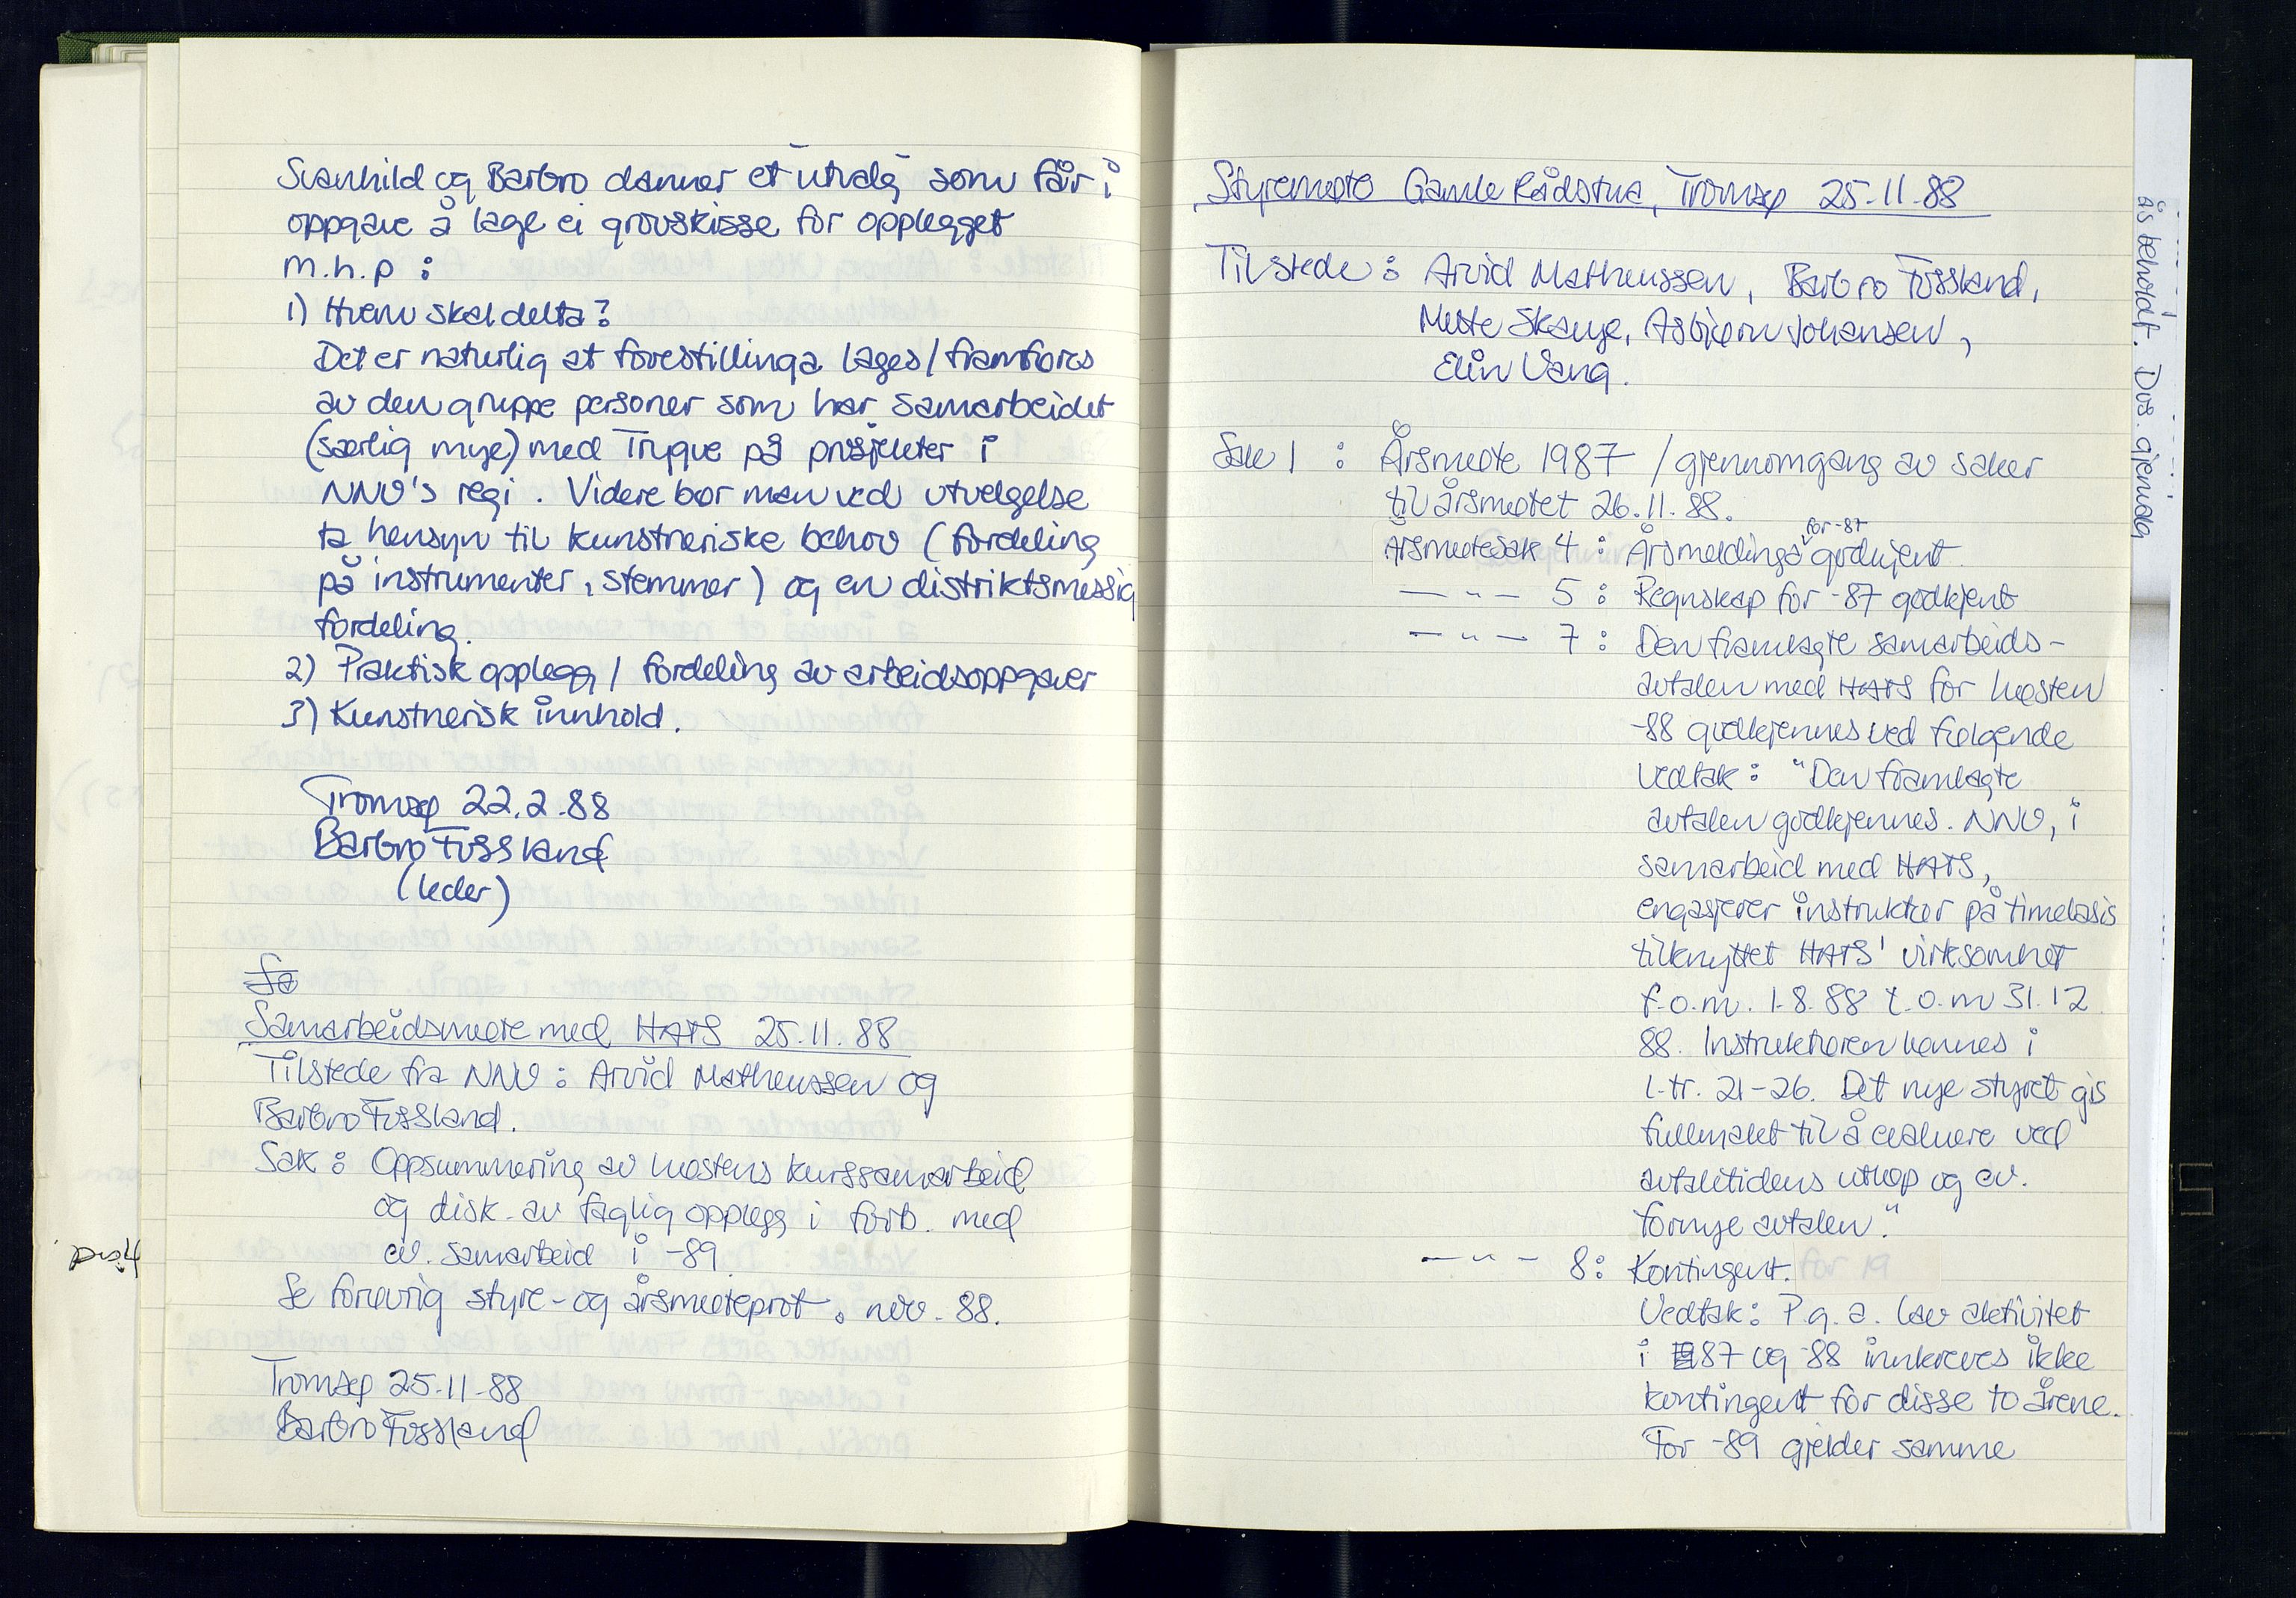 Svanhild og Barbro danner et utvalg som får i
oppgave å lage ei grovskisse for opplegget
m.h.p :
1) Hvem skal delta?
Det er naturlig at forestillinga lages / framføres
av den gruppe personer som har samarbeidet
(særlig mye) med Trygve på prosjekter i
NNV's regi. Videre bør man ved utvelgelse
ta hensyn til kunstneriske behov (fordeling
på instrumenter, stemmer) og en distriktsmessig
fordeling.
2) Praktisk opplegg / fordeling av arbeidsoppgaver
3) Kunstnerisk innhold.
Tromsø 22.2.88
Barbro Fossland
(leder)
Se
Samarbeidsmøte med HATS 25.11.88
Tilstede fra NNV: Arvid Matheussen og
Barbro Fossland.
Sak : Oppsummering av høstens kurssamarbeid
og disk. av faglig opplegg i forb. med
ev. samarbeid i -89.
Se forøvrig styre- og årsmøteprot. nov. 88.
Tromsø 25.11.88
Barbro Fossland
Styremøte Gamle Rådstua, Tromsø 25.11.88
Tilstede : Arvid Matheussen, Barbro Fossland,
Mette Skauge, Asbjørn Johansen,
Elin Vang.
Sak 1 : Årsmøte 1987 / gjennomgang av saker
til årsmøtet 26.11.88.
for -87
Årsmøtesak 4 : Årsmelding godkjent
— " — 5 : Regnskap for -87 godkjent
— " — 7 : Den framlagte samarbeids-
avtalen med HATS for høsten
-88 godkjennes ved følgende
vedtak : "Den framlagte
avtalen godkjennes. NNV, i
samarbeid med HATS,
engasjerer instruktør på timebasis
tilknyttet HATS' virksomhet
f.o.m. 1.8.88 t.o.m 31.12
88. Instruktøren lønnes i
l.tr. 21-26. Det nye styret gis
fullmakt til å evaluere ved
avtaletidens utløp og ev.
fornye avtalen."
— " — 8: Kontingent. for 19
Vedtak: P.g.a. lav aktivitet
i 87 og -88 innkreves ikke
kontingent for disse to årene.
For -89 gjelder samme
ås beholdt. Dvs. gjenvalg